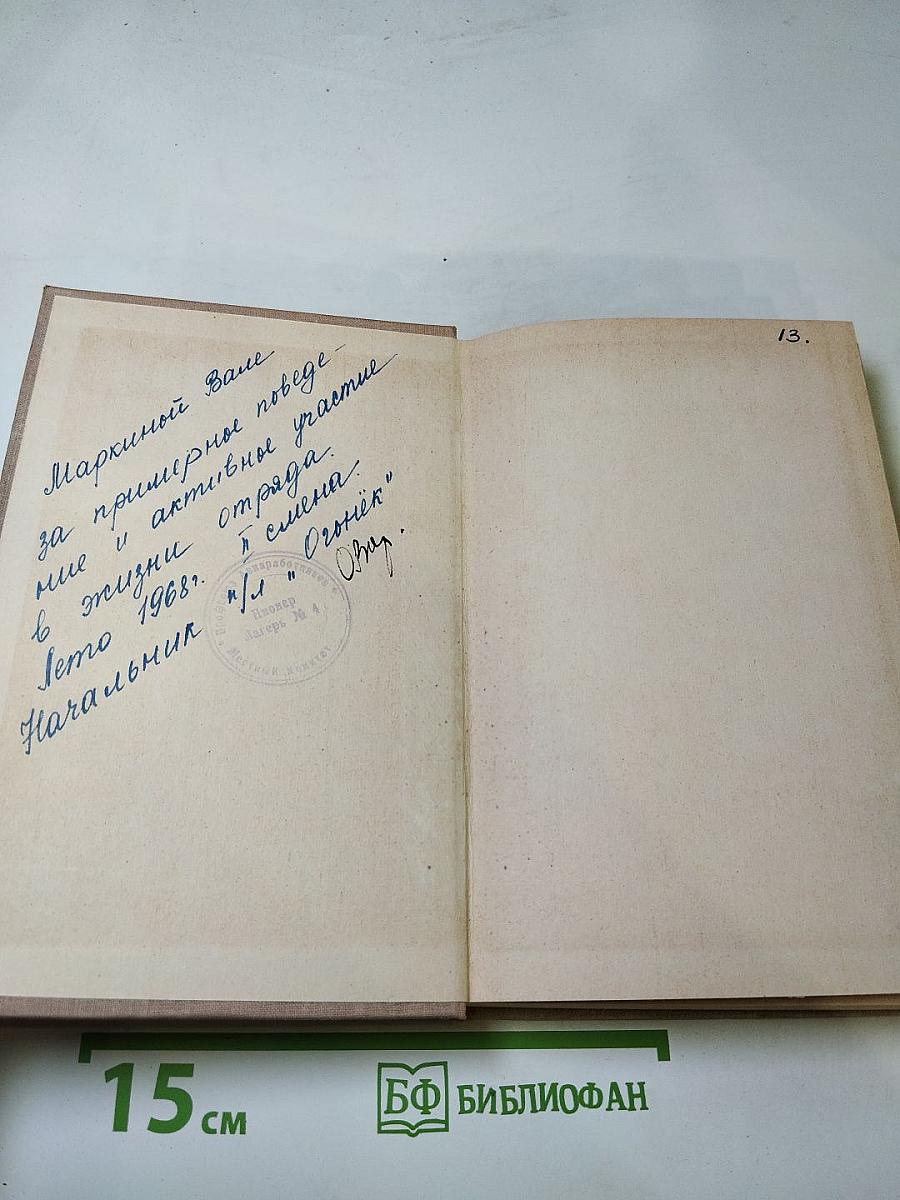 13.
Маркиной Вале
за примерное поведе-
ние и активное участие
в жизни отряда.
Лето 1968г. II смена.
Начальник п/л "Огонёк"
Пионер
Лагерь № 4
Местный Комитет
15 см
БФ БИБЛИОФАН